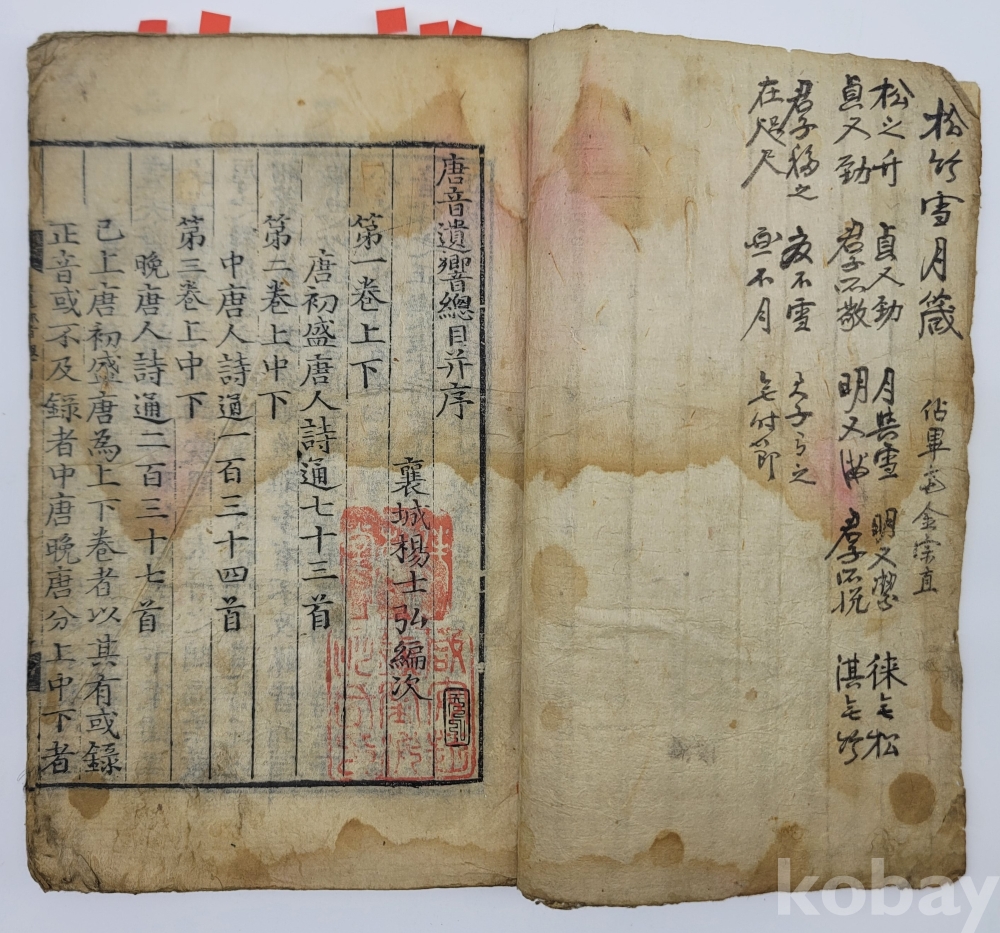 松竹雪月箴
佔畢齋金宗直
松之竹 貞又勁 月與雪 明又瑩 徠之松
貞又勁 君子所敬 明又 君子所悅 淇之竹
君子 之 友不雪 天子 之
在咫尺 不月
唐音遺響總目并序
襄城楊士弘編次
第一卷上下
唐初盛唐人詩通七十三首
第二卷上中下
中唐人詩通一百三十四首
第三卷上中下
晚唐人詩通二百三十七首
已上唐初盛唐為上下卷者以其有或錄
正音或不及錄者中唐晚唐分上中下者
kobay